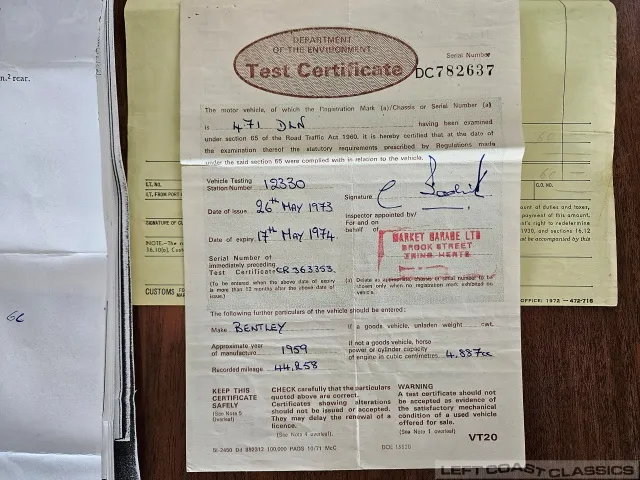 n.² rear.
DEPARTMENT
OF THE ENVIRONMENT
Test Certificate
Serial Number
DC782637
The motor vehicle, of which the Registration Mark (a)/Chassis or Serial Number (a)
is 471 DLN having been examined
under section 65 of the Road Traffic Act 1960, it is hereby certified that at the date of
the examination thereof the statutory requirements prescribed by Regulations made
under the said section 65 were complied with in relation to the vehicle.
Vehicle Testing
Station Number 12330
Signature
Date of issue 26th MAY 1973
Inspector appointed by/
For and on
behalf of
MARKET GARAGE LTD
BROOK STREET
TRING HERTS
Date of expiry 17th MAY 1974
Serial Number of
immediately preceding
Test Certificate CR 363353
(To be entered when the above date of expiry
is more than 12 months after the above date of
issue)
(a) Delete as appropriate: chassis or serial number to be
shown only when no registration mark exhibited on
vehicle.
The following further particulars of the vehicle should be entered:
Make BENTLEY
If a goods vehicle, unladen weight cwt.
Approximate year
of manufacture 1959
If not a goods vehicle, horse
power or cylinder capacity
of engine in cubic centimetres 4.887cc
Recorded mileage 44.858
KEEP THIS
CERTIFICATE
SAFELY
(See Note 5
Overleaf)
CHECK carefully that the particulars
quoted above are correct.
Certificates showing alterations
should not be issued or accepted.
They may delay the renewal of a
licence.
(See Note 4 overleaf).
WARNING
A test certificate should not
be accepted as evidence of
the satisfactory mechanical
condition of a used vehicle
offered for sale.
(See Note 1 overleaf).
VT20
CUSTOMS
OFFICE: 1972 — 472-716
LEFT COAST CLASSICS